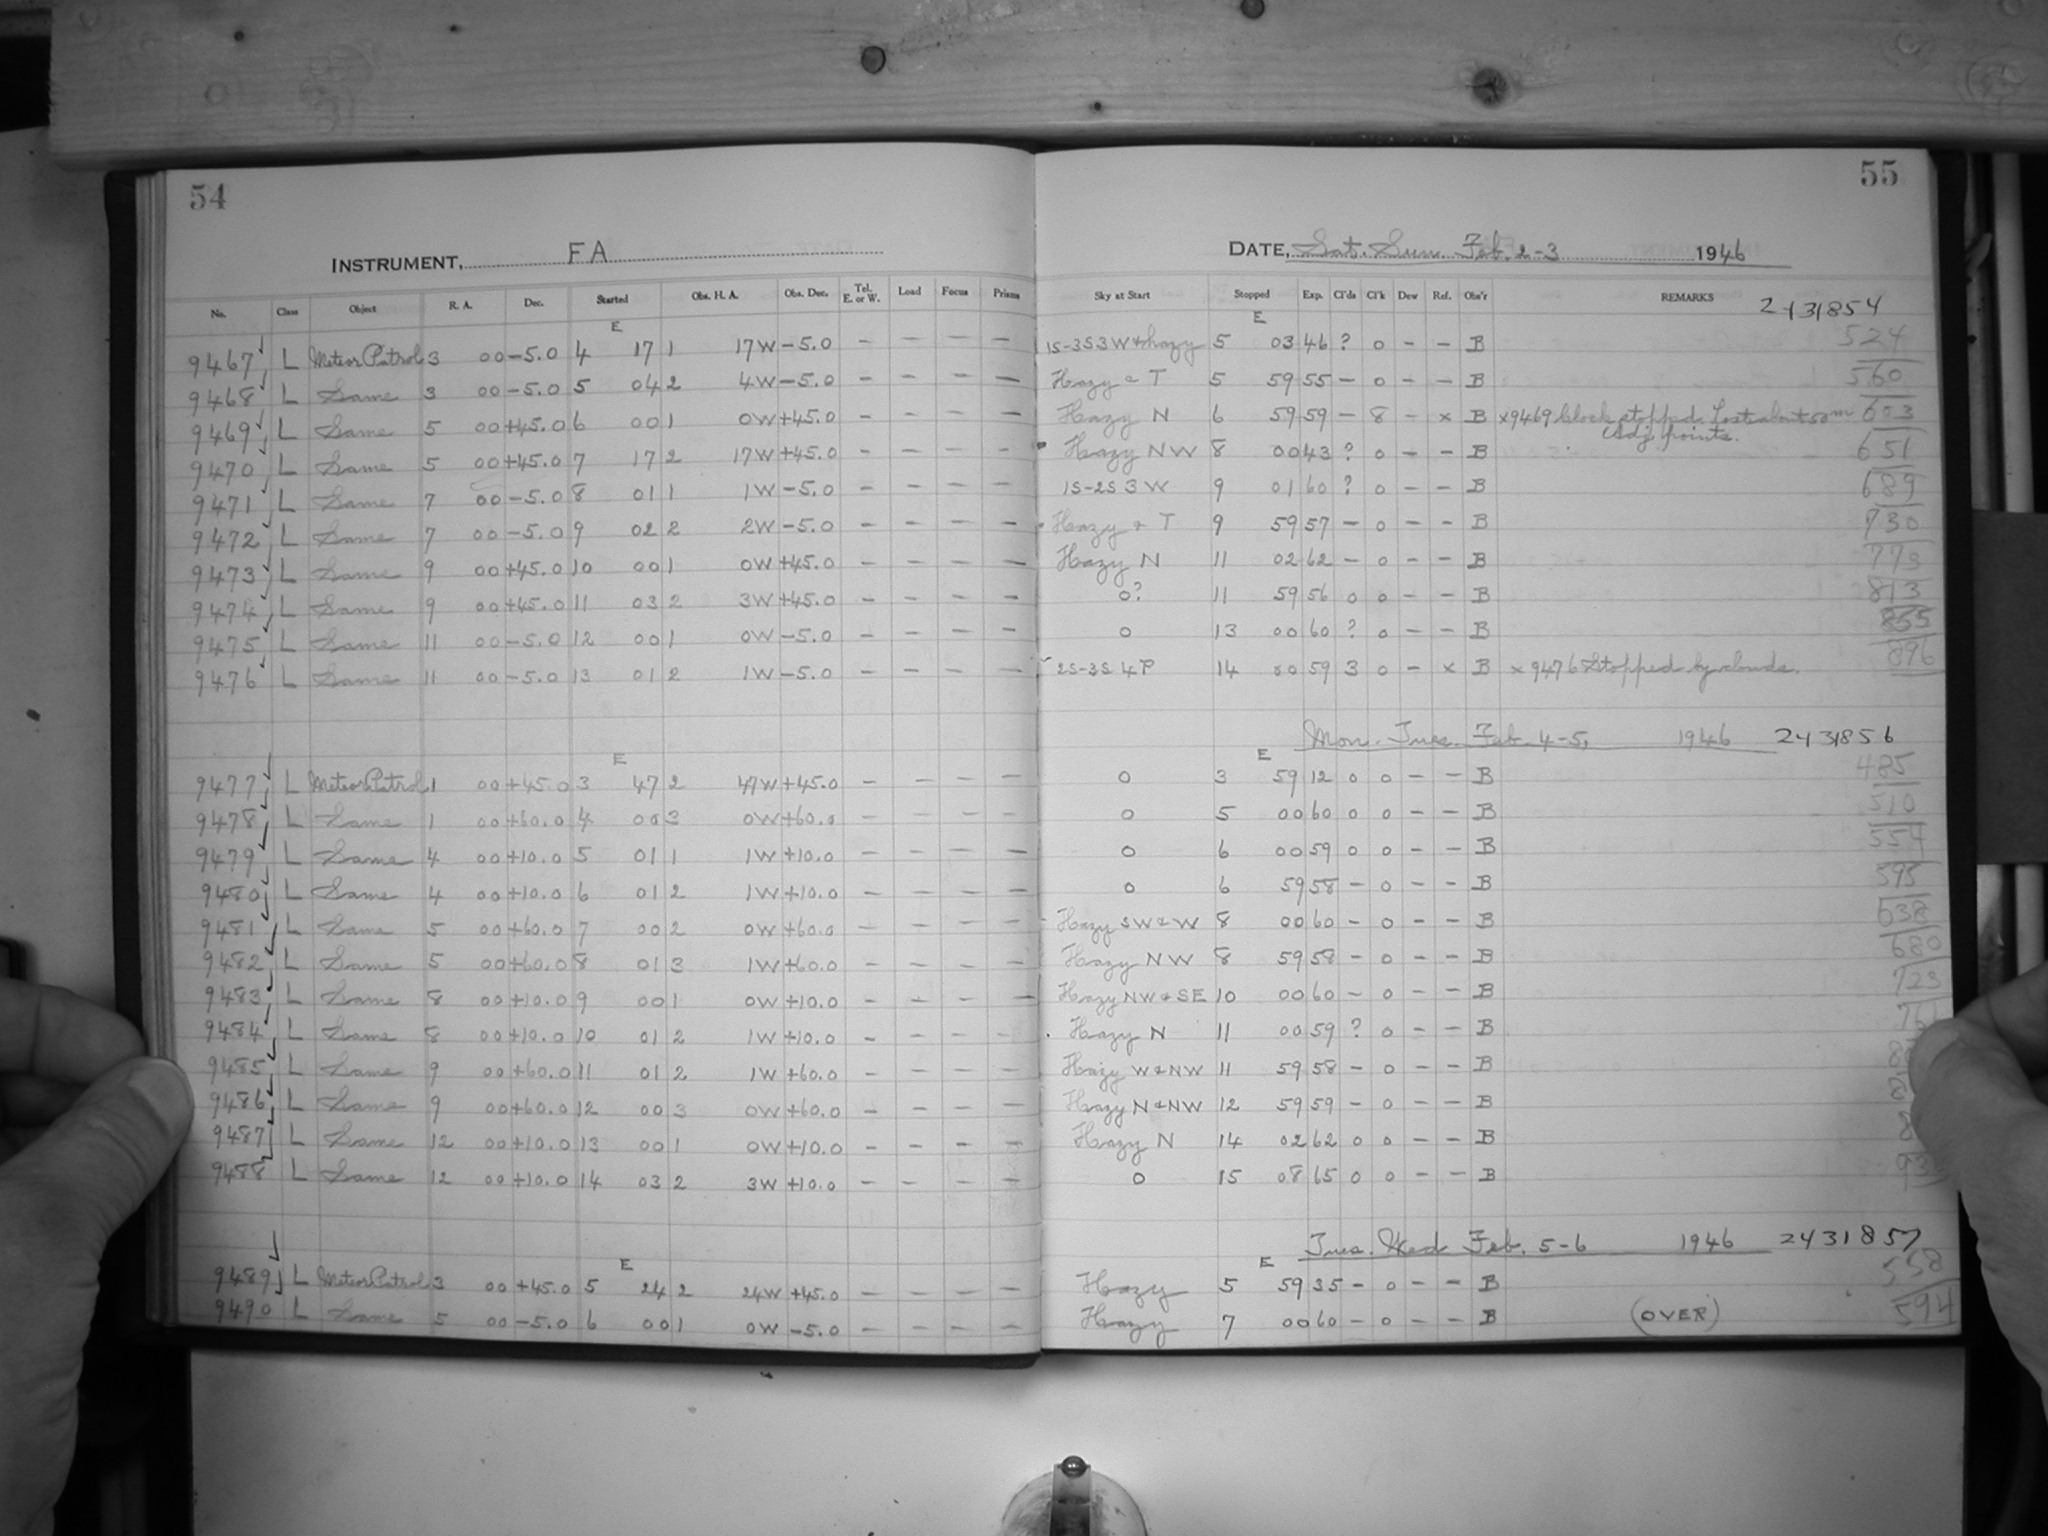 54
INSTRUMENT, FA
No. Class Object R. A. Dec. Started Obs. H. A. Obs. Dec. Tel. E. or W. Load Focus Prisms
E
9467 L Meteor Patrol 3 00 -5.0 4 17 1 17W -5.0 - - - -
9468 L Same 3 00 -5.0 5 04 2 4W -5.0 - - - -
9469 L Same 5 00 +45.0 6 00 1 0W +45.0 - - - -
9470 L Same 5 00 +45.0 7 17 2 17W +45.0 - - - -
9471 L Same 7 00 -5.0 8 01 1 1W -5.0 - - - -
9472 L Same 7 00 -5.0 9 02 2 2W -5.0 - - - -
9473 L Same 9 00 +45.0 10 00 1 0W +45.0 - - - -
9474 L Same 9 00 +45.0 11 03 2 3W +45.0 - - - -
9475 L Same 11 00 -5.0 12 00 1 0W -5.0 - - - -
9476 L Same 11 00 -5.0 13 01 2 1W -5.0 - - - -
E
9477 L Meteor Patrol 1 00 +45.0 3 47 2 47W +45.0 - - - -
9478 L Same 1 00 +60.0 4 00 3 0W +60.0 - - - -
9479 L Same 4 00 +10.0 5 01 1 1W +10.0 - - - -
9480 L Same 4 00 +10.0 6 01 2 1W +10.0 - - - -
9481 L Same 5 00 +60.0 7 00 2 0W +60.0 - - - -
9482 L Same 5 00 +60.0 8 01 3 1W +60.0 - - - -
9483 L Same 8 00 +10.0 9 00 1 0W +10.0 - - - -
9484 L Same 8 00 +10.0 10 01 2 1W +10.0 - - - -
9485 L Same 9 00 +60.0 11 01 2 1W +60.0 - - - -
9486 L Same 9 00 +60.0 12 00 3 0W +60.0 - - - -
9487 L Same 12 00 +10.0 13 00 1 0W +10.0 - - - -
9488 L Same 12 00 +10.0 14 03 2 3W +10.0 - - - -
E
9489 L Meteor Patrol 3 00 +45.0 5 24 2 24W +45.0 - - - -
9490 L Same 5 00 -5.0 6 00 1 0W -5.0 - - - -
55
DATE, Sat. Sun. Feb. 2-3 1946
Sky at Start Stopped Exp. Cl'ds Cl'k Dew Ref. Obs'r REMARKS
E 2431854
1S-3S3W & hazy 5 03 46 ? 0 - - B 524
Hazy & T 5 59 55 - 0 - - B 560
Hazy N 6 59 59 - 8 - x B x9469 Clock stopped. Lost about 50m 603
Adj points.
Hazy NW 8 00 43 ? 0 - - B 651
1S-2S 3W 9 01 60 ? 0 - - B 689
Hazy & T 9 59 57 - 0 - - B 730
Hazy N 11 02 62 - 0 - - B 773
0? 11 59 56 0 0 - - B 813
0 13 00 60 ? 0 - - B 855
2S-3S 4P 14 00 59 3 0 - x B x9476 Stopped by clouds. 896
Mon. Tues. Feb. 4-5, 1946 2431856
E
0 3 59 12 0 0 - - B 485
0 5 00 60 0 0 - - B 510
0 6 00 59 0 0 - - B 554
0 6 59 58 - 0 - - B 595
Hazy SW & W 8 00 60 - 0 - - B 638
Hazy NW 8 59 58 - 0 - - B 680
Hazy NW & SE 10 00 60 - 0 - - B 723
Hazy N 11 00 59 ? 0 - - B
Hazy W & NW 11 59 58 - 0 - - B
Hazy N & NW 12 59 59 - 0 - - B
Hazy N 14 02 62 0 0 - - B
0 15 08 65 0 0 - - B
Tues. Wed Feb. 5-6 1946 2431857
E
Hazy 5 59 35 - 0 - - B 558
Hazy 7 00 60 - 0 - - B (OVER) 594